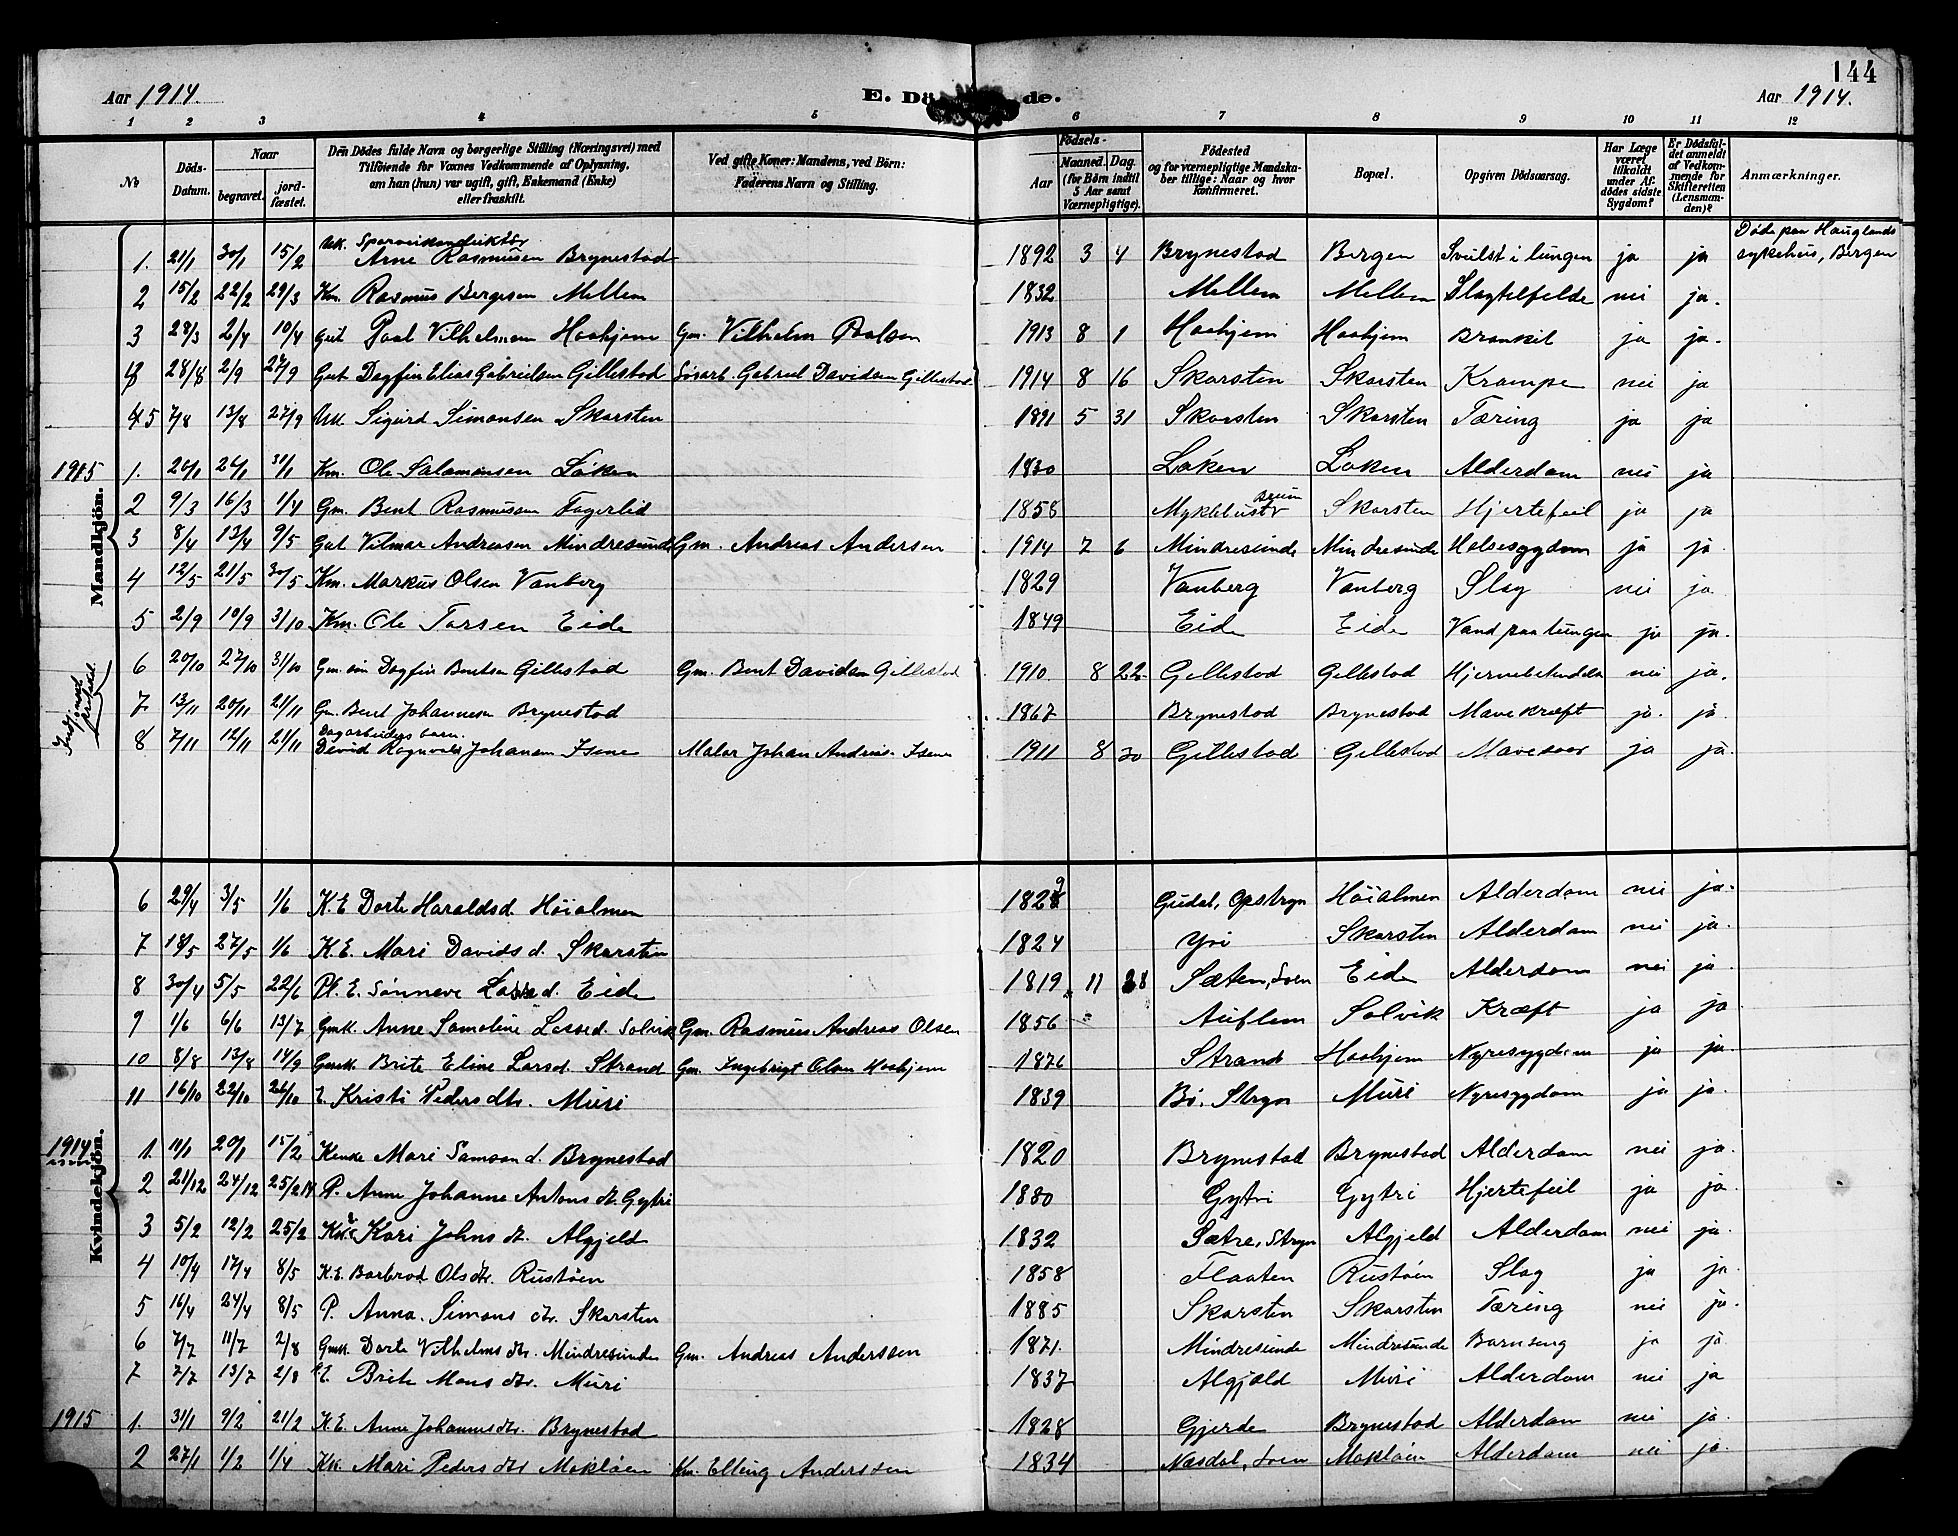 144
Aar 1914.
E. Dö de.
Aar 1914.
1 2 3 4 5 6 7 8 9 10 11 12
No
Döds-Datum.
Naar
begravet.
jordfæstet.
Den Dödes fulde Navn og borgerlige Stilling (Næringsvei) med
Tilföiende for Voxnes Vedkommende af Oplysning,
om han (hun) var ugift, gift, Enkemand (Enke)
eller fraskilt.
Ved gifte Koner: Mandens, ved Börn:
Faderens Navn og Stilling.
Födsels-
Aar
Maaned. Dag.
(for Börn indtil
5 Aar samt
Værnepligtige).
Födested
og for værnepligtige Mandska-
ber tillige: Naar og hvor
konfirmeret.
Bopæl.
Opgiven Dödsaarsag.
Har Læge
været
tilkaldt
under Af-
dödes sidste
Sygdom?
Er Dödsfal-
det anmeldt
af Vedkom-
mende for
Skifteretten
(Lensman-
den)?
Anmærkninger.
Mandkjön.
1. 21/1 30/1 15/2 Uk. Sporveiskonduktør Arne Rasmusen Brynestad 1892 3 4 Brynestad Bergen Svulst i lungen ja ja Døde paa Hauglands sykehus, Bergen
2 15/2 22/2 29/3 Km. Rasmus Bergesen Mellem 1832 Mellem Mellem Slagtilfelde nei ja.
3 28/3 2/4 10/4 Gut Paal Vilhelmsen Haahjem Gm. Vilhelm Paalsen 1913 8 1 Haahjem Haahjem Bronkit ja ja.
28/8 2/9 27/9 Gut Dagfin Elias Gabrielsen Gillestad Løsarb. Gabriel Davidsen Gillestad 1914 8 16 Skarsten Skarsten Krampe nei ja
5 7/8 13/8 27/9 Uk Sigurd Simonsen Skarsten 1891 5 31 Skarsten Skarsten Tæring ja ja
1915 1. 20/1 26/1 31/1 Km. Ole Salamonsen Løken 1830 Løken Løken Alderdom nei ja
2 9/3 16/3 1/4 Gm. Bent Rasmussen Fagerlid 1858 Myklebust Breim Skarsten Hjertefeil ja ja
3 8/4 13/4 9/5 Gut Vilmar Andreasen Mindresunde Gm. Andreas Andersen 1914 7 6 Mindresunde Mindresunde Halsesygdom ja ja
4 12/5 21/5 30/5 Km. Markus Olsen Vanberg 1829 Vanberg Vanberg Slag nei ja
5 2/9 10/9 3/10 Km. Ole Tarsen Eide 1849 Eide Eide Vand paa lungen ja ja.
6 20/10 27/10 31/10 Gm. søn Dagfin Bentsen Gillestad Gm. Bent Davidsen Gillestad 1910 8 22. Gillestad Gillestad Hjernebetendelse nei ja.
7 13/11 20/11 21/11 Gm. Bent Johannesen Brynestad 1867 Brynestad Brynestad Mavekræft ja. ja.
8 7/11 12/11 21/11 Dagarbeiders barn. David Ragnvald Johansen Isene Maler Johan Andreas Isene 1911 8 20 Gillestad Gillestad Mavesaar ja ja.
Kvindekjön.
6 29/4 3/5 1/6 K.E Dorte Haraldsd. Høialmen 1829 Gudal, Opstryn Høialmen Alderdom nei ja.
7 18/5 27/5 1/6 K.E. Mari Davids d. Skarsten 1824 Yri Skarsten Alderdom nei ja.
8 30/4 5/5 22/6 Pl. E. Sønneve Lassed. Eide 1819 11 28 Sæten, Loen Eide Alderdom nei ja.
9 1/6 6/6 13/7 Gmk. Anne Samoline Lassed. Solvik Gm. Rasmus Andreas Olsen 1856 Auflem Solvik Kræft ja ja
10 8/8 13/8 14/9 Gmk Brite Eline Larsd. Strand Gm. Ingebrigt Olsen Haahjem 1876 Strand Haahjem Nyresygdom ja ja.
11 16/10 22/10 26/10 E. Kristi Pedersdtr. Muri 1839 Bø, Stryn Muri Nyresygdom ja ja.
1914 1. 11/1 20/1 15/2 Kenke Mari Samson d. Brynestad 1820 Brynestad Brynestad Alderdom nei ja.
2 21/12 24/12 25/2 14 P. Anne Johanne Antons dt. Gytri 1880 Gytri Gytri Hjertefeil ja ja.
3 5/2 12/2 25/2 Kari Johns dt. Algjeld 1832 Sætre, Stryn Algjeld Alderdom nei ja.
4 10/4 17/4 8/5 K.E. Barbrod Olsdtr. Rustøen 1858 Flaaten Rustøen Slag ja ja.
5 16/4 24/4 8/5 P. Anna. Simons dtr. Skarsten 1885 Skarsten Skarsten Tæring nei ja.
6 7/7 11/7 2/8 Gmk. Dorte Vilhelms dtr. Mindresunde Gm. Andreas Anderssen 1871. Mindresunde Mindresunde Barnseng ja ja.
7 7/7 13/7 2/8 E Brite Mons dtr. Muri 1837 Algjeld Muri Alderdom nei ja
1915 1. 31/1 9/2 21/2 K.E. Anne Johannesdtr. Brynestad 1828 Gjerde Brynestad Alderdom nei ja.
2 27/1 1/2 1/4 Kk. Mari Peders dtr Makløen Km. Elling Anderssen 1834 Næsdal, Loen Makløen Alderdom nei ja.